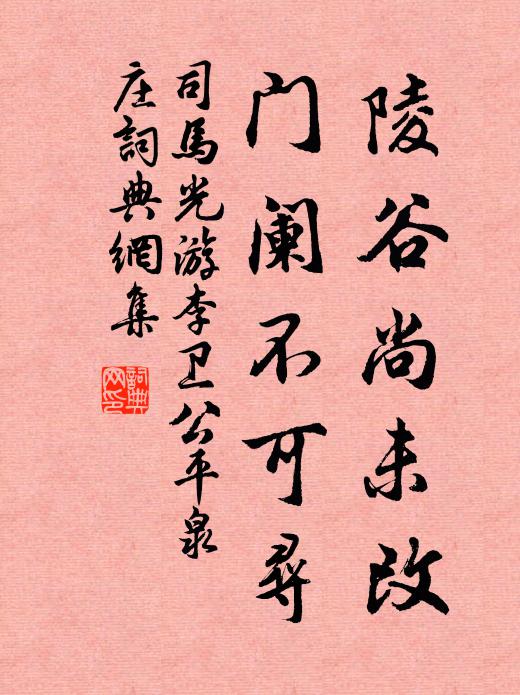 陵谷尚未改
门阑不可寻
司马光游李卫公平泉
庄詞典網集
詞典
网印